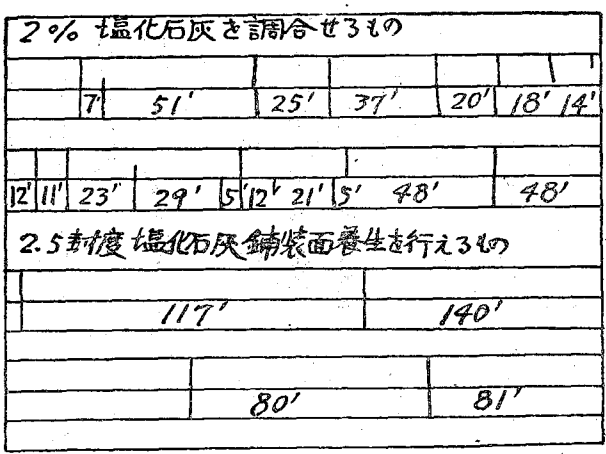 2% 塩化石灰を調合せるもの
7' 51' 25' 37' 20' 18' 14'
12' 11' 23' 29' 5' 12' 21' 5' 48' 48'
2.5封度塩化石灰鋪装面養生を行えるもの
117' 140'
80' 81'